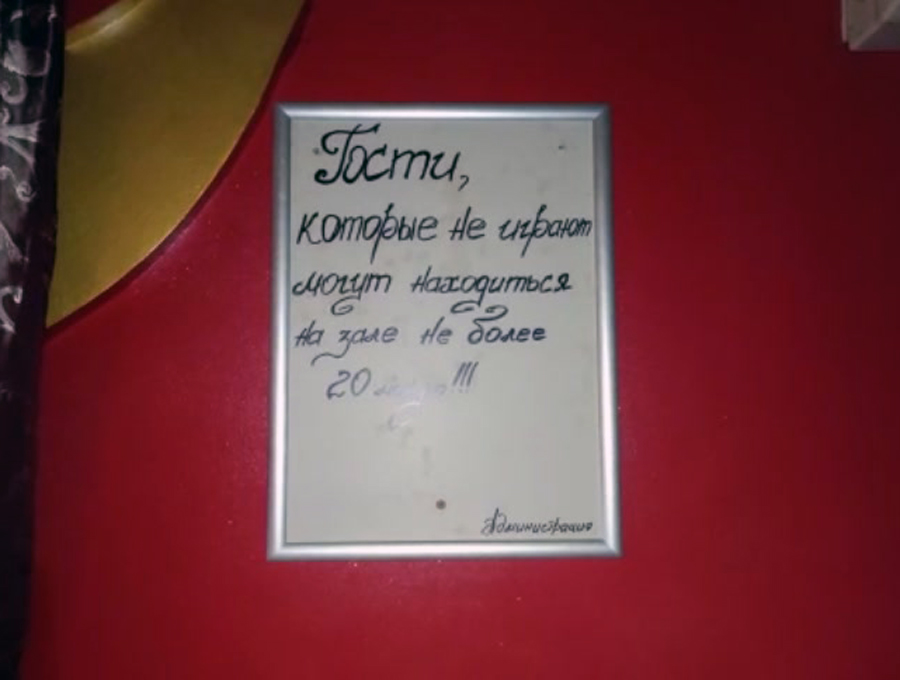 Гости,
которые не играют
могут находиться
на зале не более
20 !!!
Администрация